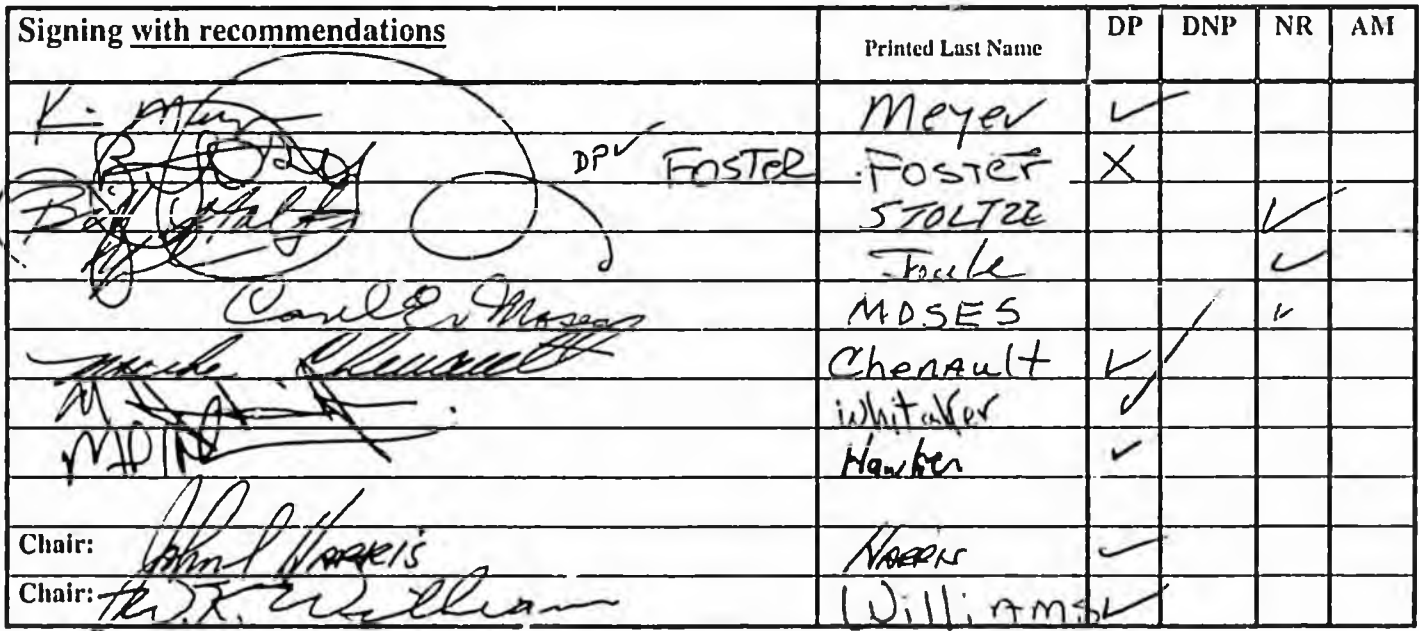 Signing with recommendations Printed Last Name DP DNP NR AM
K. Meyer ✓
DP ✓ FOSTER FOSTER X
STOLTZE ✓
✓
Carl E. Moses MOSES ✓
Chenault Chenault ✓
Whitaker ✓
Hawker ✓
Chair: John L HARRIS HARRIS ✓
Chair: Williams Williams ✓